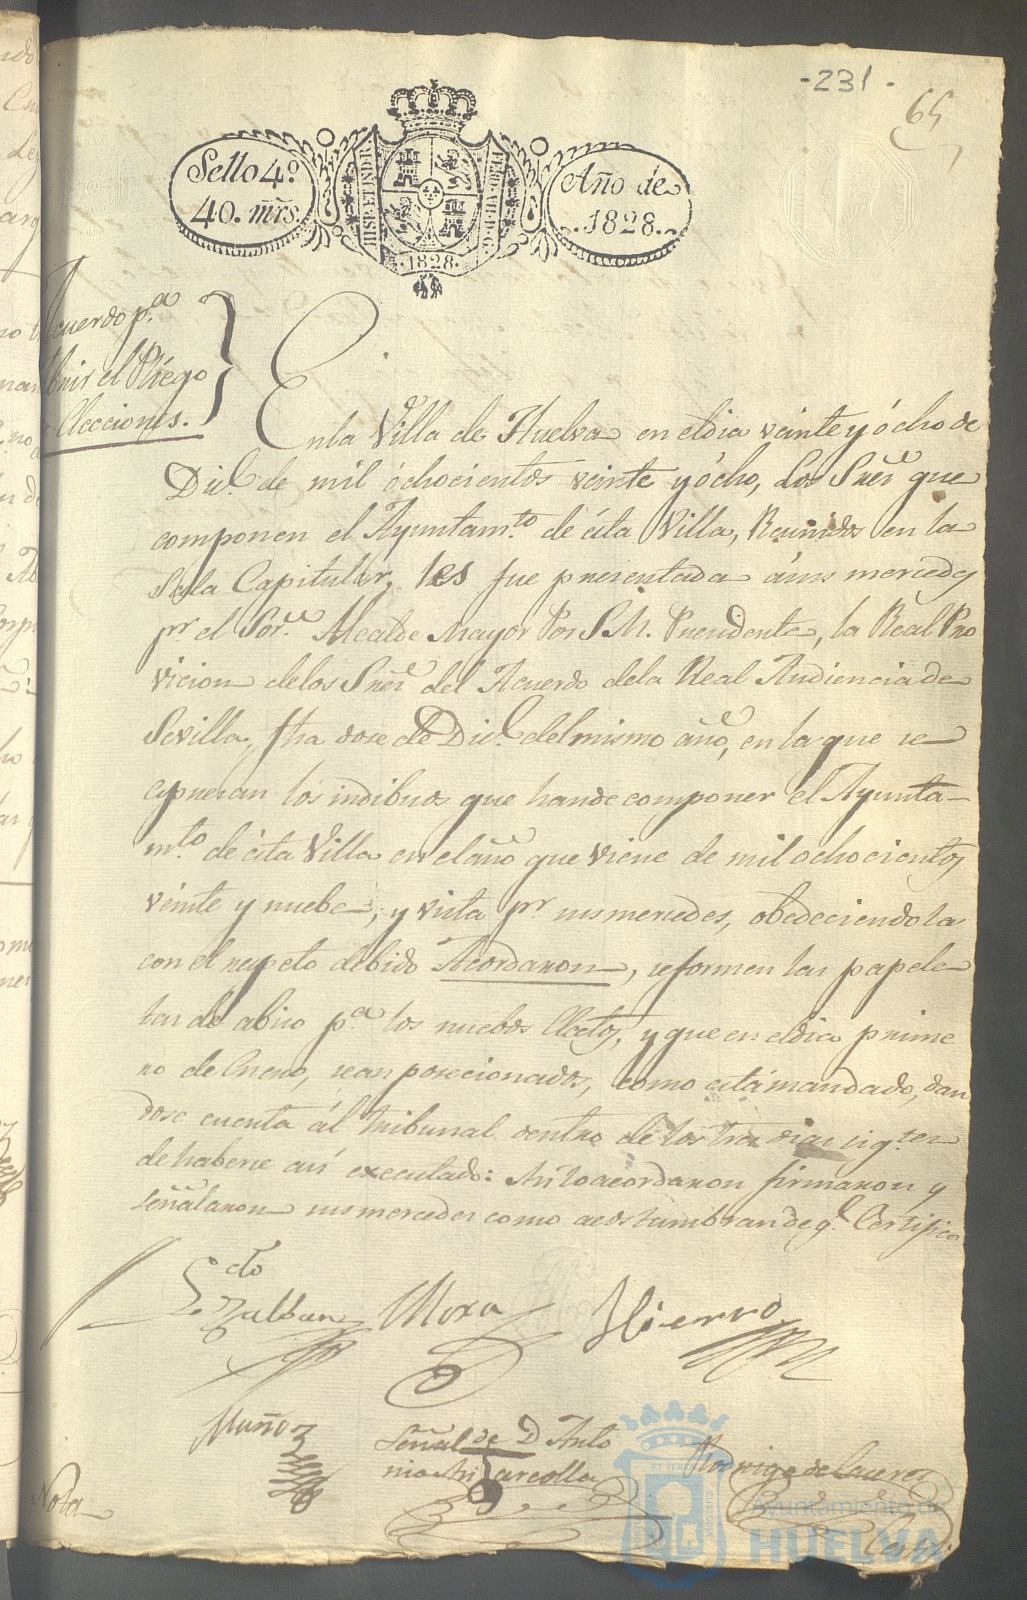 -231-
65
Sello 4.º
40. mrs.
HISP. ET IND. R.
FERD. VII. D. G.
1828.
Año de
1828.
Acuerdo p.ª
Abrir el Pliego
de Elecciones.
En la Villa de Huelva en el dia veinte y ócho de
Dic.e de mil óchocientos veinte y ócho, Los Sres que
componen el Ayuntam.to de ésta Villa, Reunidos en la
Sala Capitular, les fue presentada ásus mercedes
pr el Sor. Alcalde Mayor Por S. M. Precidente, la Real Pro
vicion delos Sres del Acuerdo dela Real Audiencia de
Sevilla, fha dose de Dic.e del mismo año, en la que se
expresan los indibiuos que hande componer el Ayunta-
m.to de ésta Villa en el año que viene de mil ochocientos
veinte y nuebe, y vista pr. sus mercedes, obedeciendola
con el respeto debido Acordaron, se formen las papele
tas de abiso p.ª los nuebos Electos, y que en el dia prime
ro de Enero, sean posecionados, como está mandado, dan
dose cuenta ál Tribunal dentro de los tres dias sig.tes
de haberse asi executado: Asi lo acordaron firmaron y
señalaron sus mercedes como acostumbran de q.e Certifico
Muñoz
Mora
Hierro
Señal de D. Anto
nio Arcolla
Rodrigo de Caceres
Nota
Ayuntamiento de
HUELVA